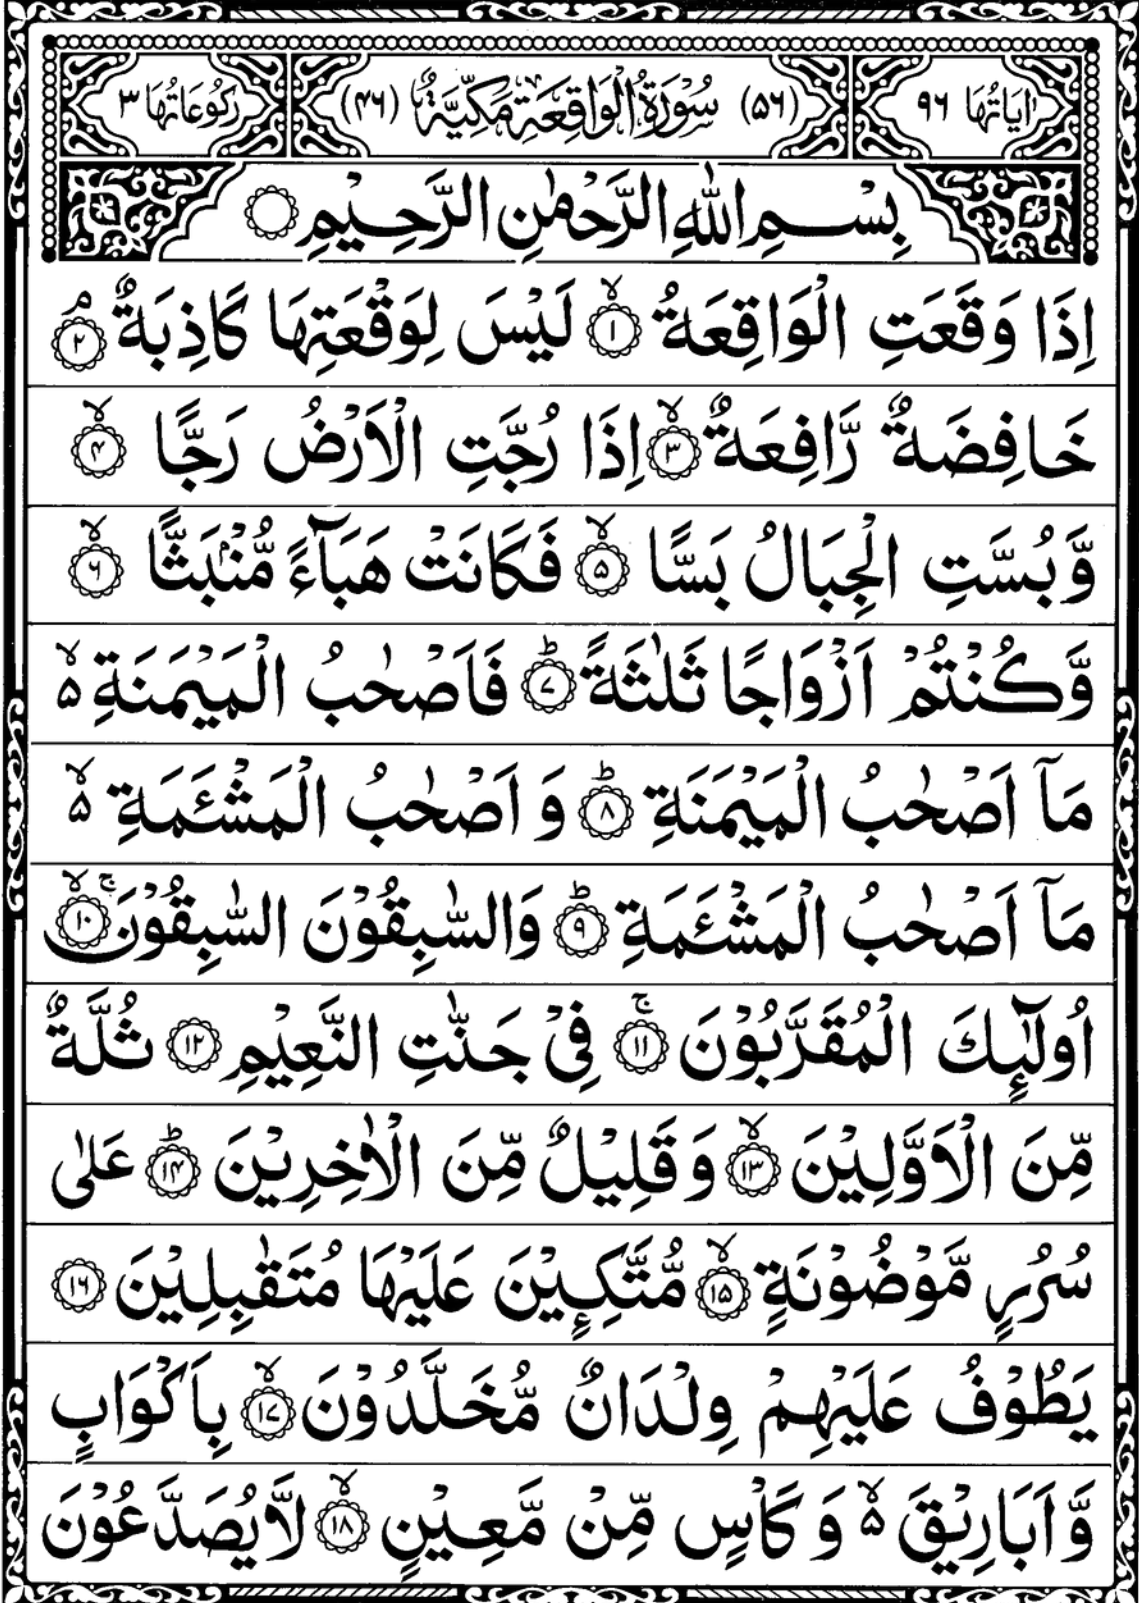 اٰيَاتُهَا ٩٦ (٥٦) سُوْرَةُ الْوَاقِعَةِ مَكِّيَّةٌ (٤٦) رُكُوْعَاتُهَا ٣
بِسْمِ اللّٰهِ الرَّحْمٰنِ الرَّحِيْمِ
اِذَا وَقَعَتِ الْوَاقِعَةُ ۙ‏﴿۱﴾ لَيْسَ لِوَقْعَتِهَا كَاذِبَةٌ ۘ‏﴿۲﴾
خَافِضَةٌ رَّافِعَةٌ ۙ‏﴿۳﴾ اِذَا رُجَّتِ الْاَرْضُ رَجًّا ۙ‏﴿۴﴾
وَّبُسَّتِ الْجِبَالُ بَسًّا ۙ‏﴿۵﴾ فَكَانَتْ هَبَآءً مُّنْۢبَثًّا ۙ‏﴿۶﴾
وَّكُنْتُمْ اَزْوَاجًا ثَلٰثَةً ؕ‏﴿۷﴾ فَاَصْحٰبُ الْمَيْمَنَةِ ۵ۙ
مَاۤ اَصْحٰبُ الْمَيْمَنَةِ ؕ‏﴿۸﴾ وَ اَصْحٰبُ الْمَشْـَٔمَةِ ۵ۙ
مَاۤ اَصْحٰبُ الْمَشْـَٔمَةِ ؕ‏﴿۹﴾ وَالسّٰبِقُوْنَ السّٰبِقُوْنَ ۚۙ‏﴿۱۰﴾
اُولٰٓئِكَ الْمُقَرَّبُوْنَ ۚ‏﴿۱۱﴾ فِىْ جَنّٰتِ النَّعِيْمِ ﴿۱۲﴾ ثُلَّةٌ
مِّنَ الْاَوَّلِيْنَ ۙ‏﴿۱۳﴾ وَقَلِيْلٌ مِّنَ الْاٰخِرِيْنَ ؕ‏﴿۱۴﴾ عَلٰى
سُرُرٍ مَّوْضُوْنَةٍ ۙ‏﴿۱۵﴾ مُّتَّكِـِٕيْنَ عَلَيْهَا مُتَقٰبِلِيْنَ ﴿۱۶﴾
يَطُوْفُ عَلَيْهِمْ وِلْدَانٌ مُّخَلَّدُوْنَ ۙ‏﴿۱۷﴾ بِاَكْوَابٍ
وَّاَبَارِيْقَ ۵ۙ وَ كَاْسٍ مِّنْ مَّعِيْنٍ ۙ‏﴿۱۸﴾ لَّا يُصَدَّعُوْنَ